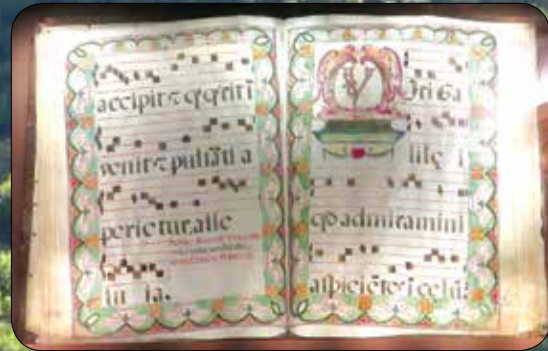 accipit ⁊ q̄ q̄rit ī
venit ⁊ pulsāti a
perietur. alle
lu ia.
Viri Ga
lilę i
qđ admiramini
aspiciētes ī celū?